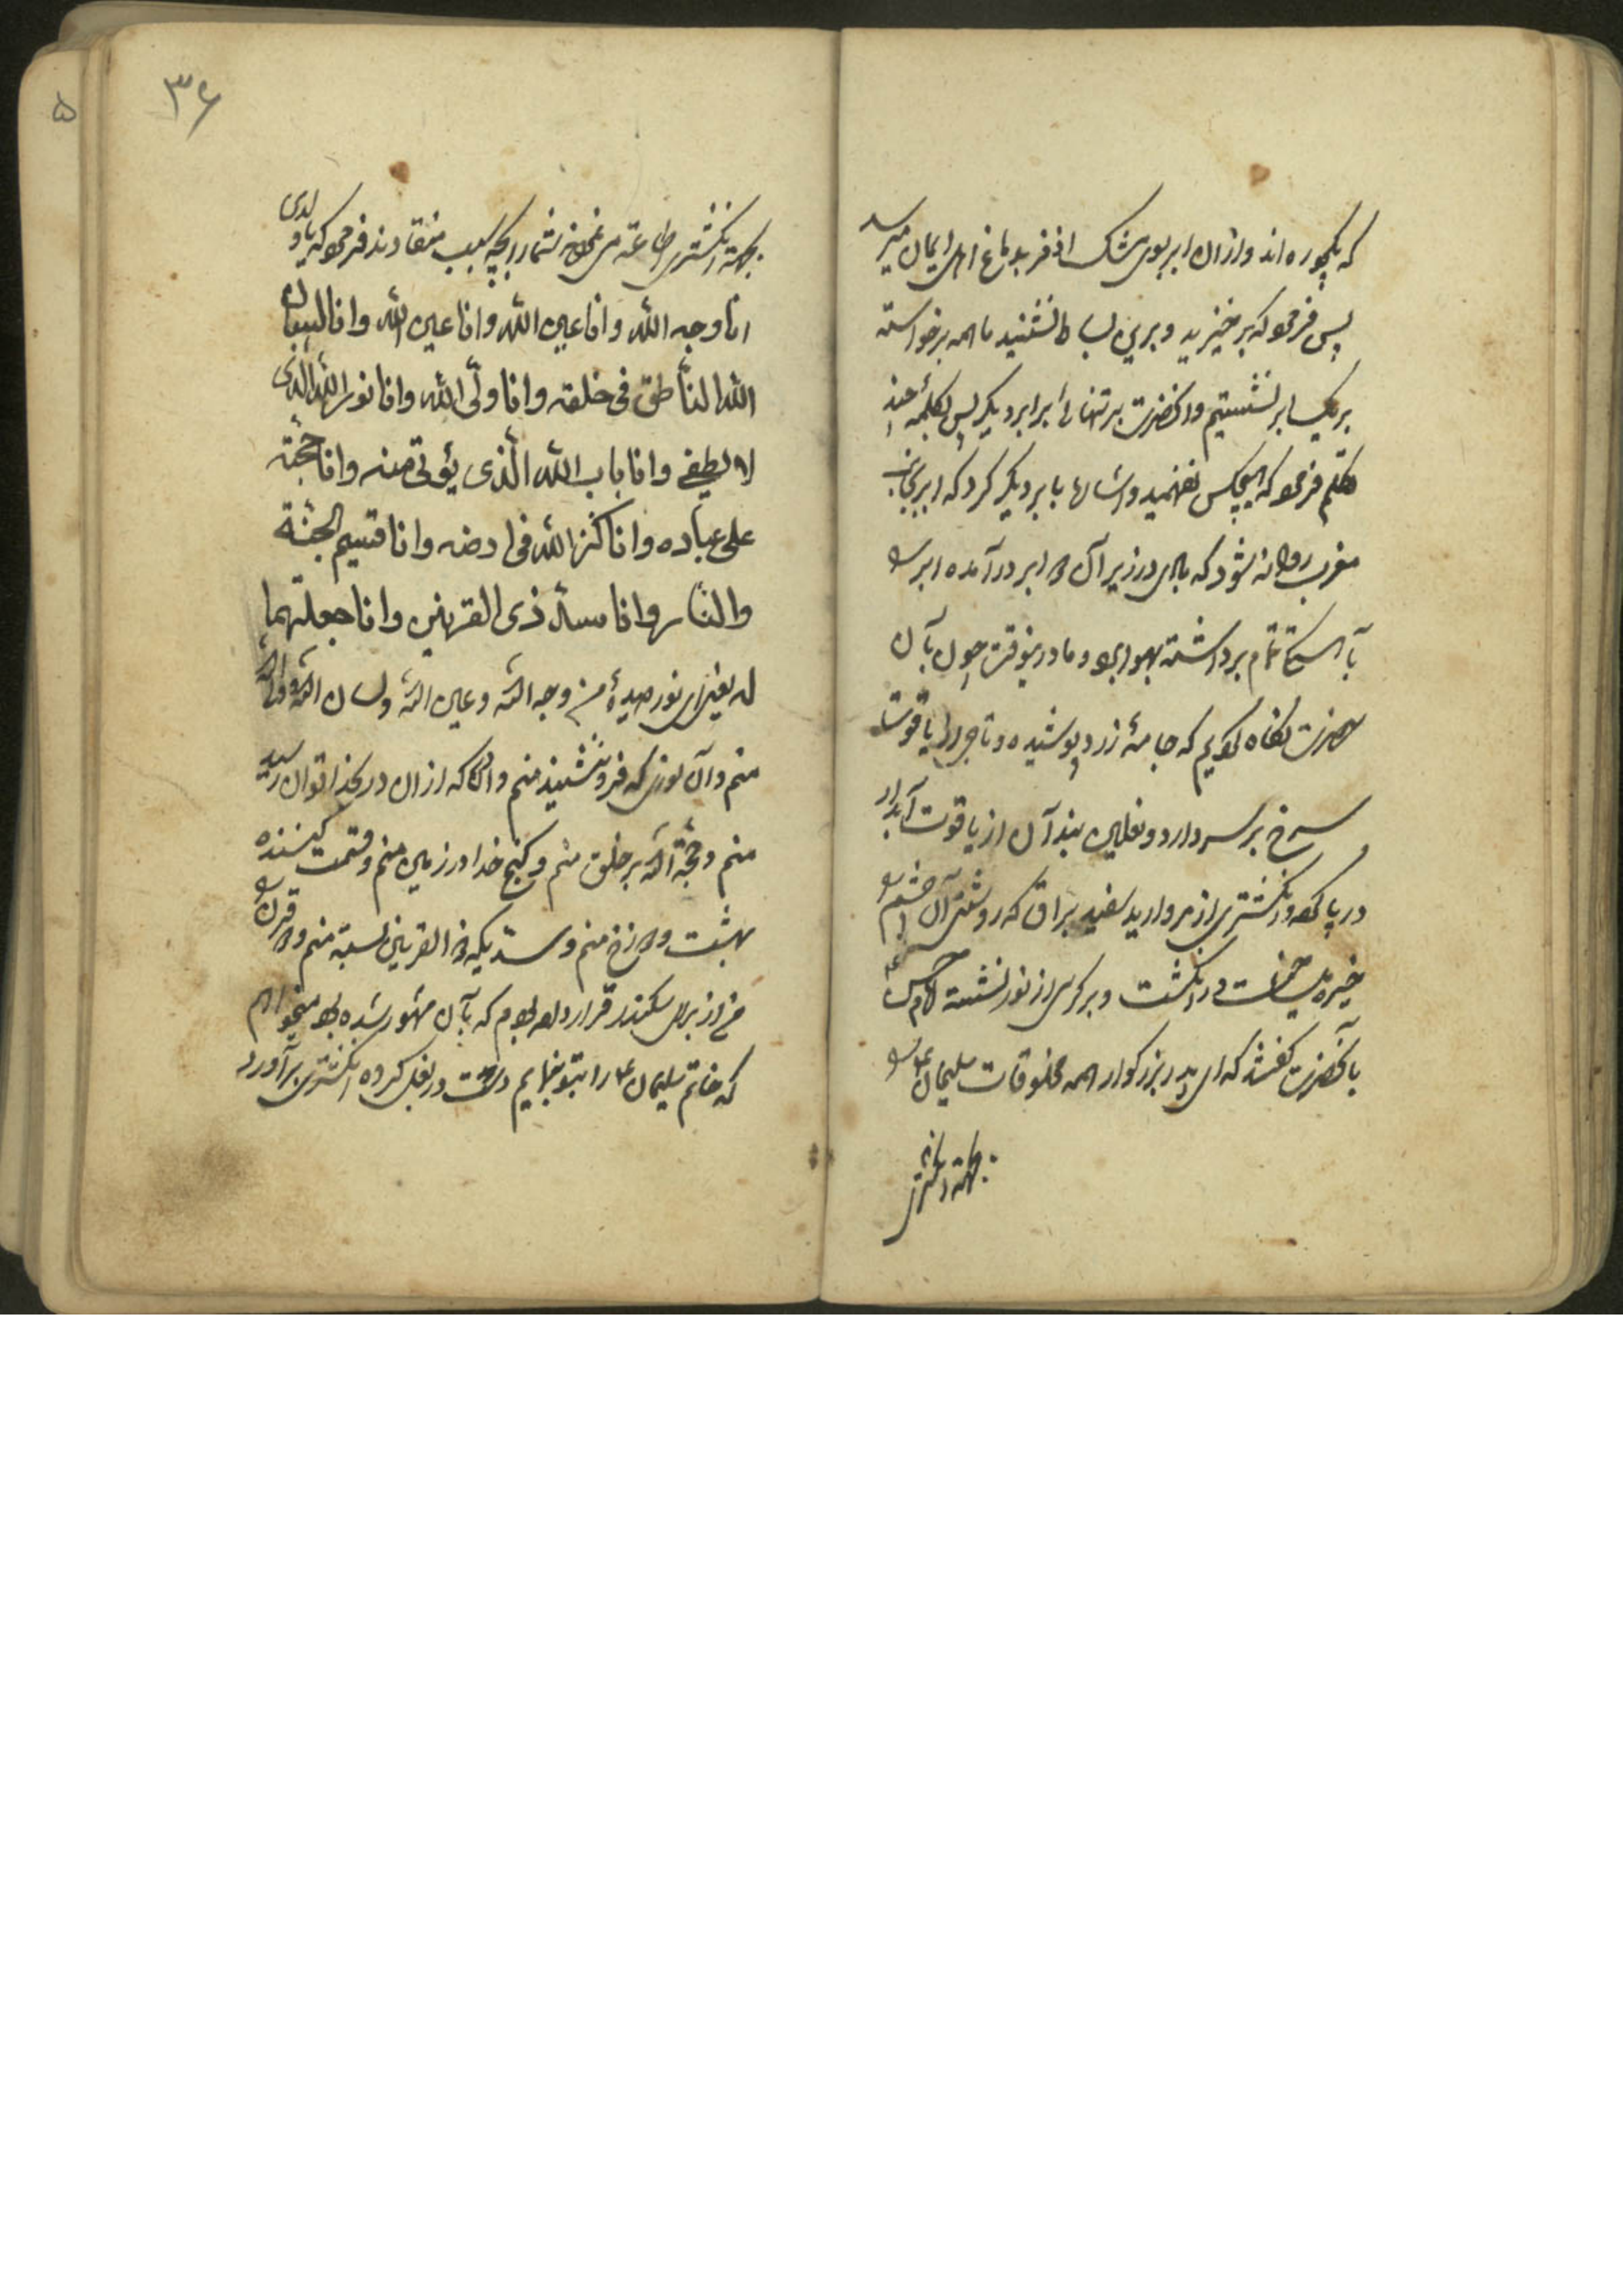 که بکجوره‌اند و ازان ابر بوی مشک اذفر بدماغ اهل ایمان میرسد
پس فرمود که برخیزید و برین بساط نشنید ما همه برخواسته
بریک ابر نشستیم و آنحضرت بر تنهائی بر ابر دیکر پس بکلمهٔ چند
تکلم فرمود که هیچکس نفهمید و اشارها بابر دیکر کرد که ابر بجانب
مغرب روانه شود که بادی در زیر آن دو ابر درآمده ابر را
بآهستگی تمام برداشته بهوا برد و ما درینوقت چون بآن
حضرت نگاه کردیم که جامهٔ زرد پوشیده و تاجی از یاقوت
سرخ بر سر دارد و نعلین بند آن از یاقوت آبدار
در پا کرده و انکشتری از مروارید سفید براق که روشنی آن چشم را
خیره میساخت در انکشت و بر کرسی از نور نشسته امام حسن ع
بآنحضرت کفتند که ای پدر بزرکوار همه مخلوقات سلیمان ع را
بجهة انکشتری
۳۶
۵
بجهة انکشتری اطاعة می‌نمودند شما را بچه سبب منقادند فرمود که یا ولدی
انا وجه الله و انا عین الله و انا عین الله و انا لسان
الله الناطق فی خلقه و انا ولّی الله و انا نور الله الذی
لا یطفی و انا باب الله الّذی یؤتی منه و انا حجّته
علی عباده و انا کنز الله فی ارضه و انا قسیم الجنّة
والنار و انا سدّ ذی القرنین و انا جعلتهما
له یعنی ای نور دیدهٔ من وجه الله و عین الله و لسان الله و ولی الله
منم و آن نوری که فرو ننشیند منم و آن در که ازان در بخدا توان رسید
منم و حجّة الله بر خلق منم و کنج خدا در زمین منم و قسمت کننده
بهشت و دوزخ منم و سدّیکه ذو القرنین بسته منم و دو قرن را
من از برای سکندر قرار داده بودم که بآن مشهور شده بود میخواهم
که خاتم سلیمان ع را بتو نمایم دست در بغل کرده انکشتری برآورد